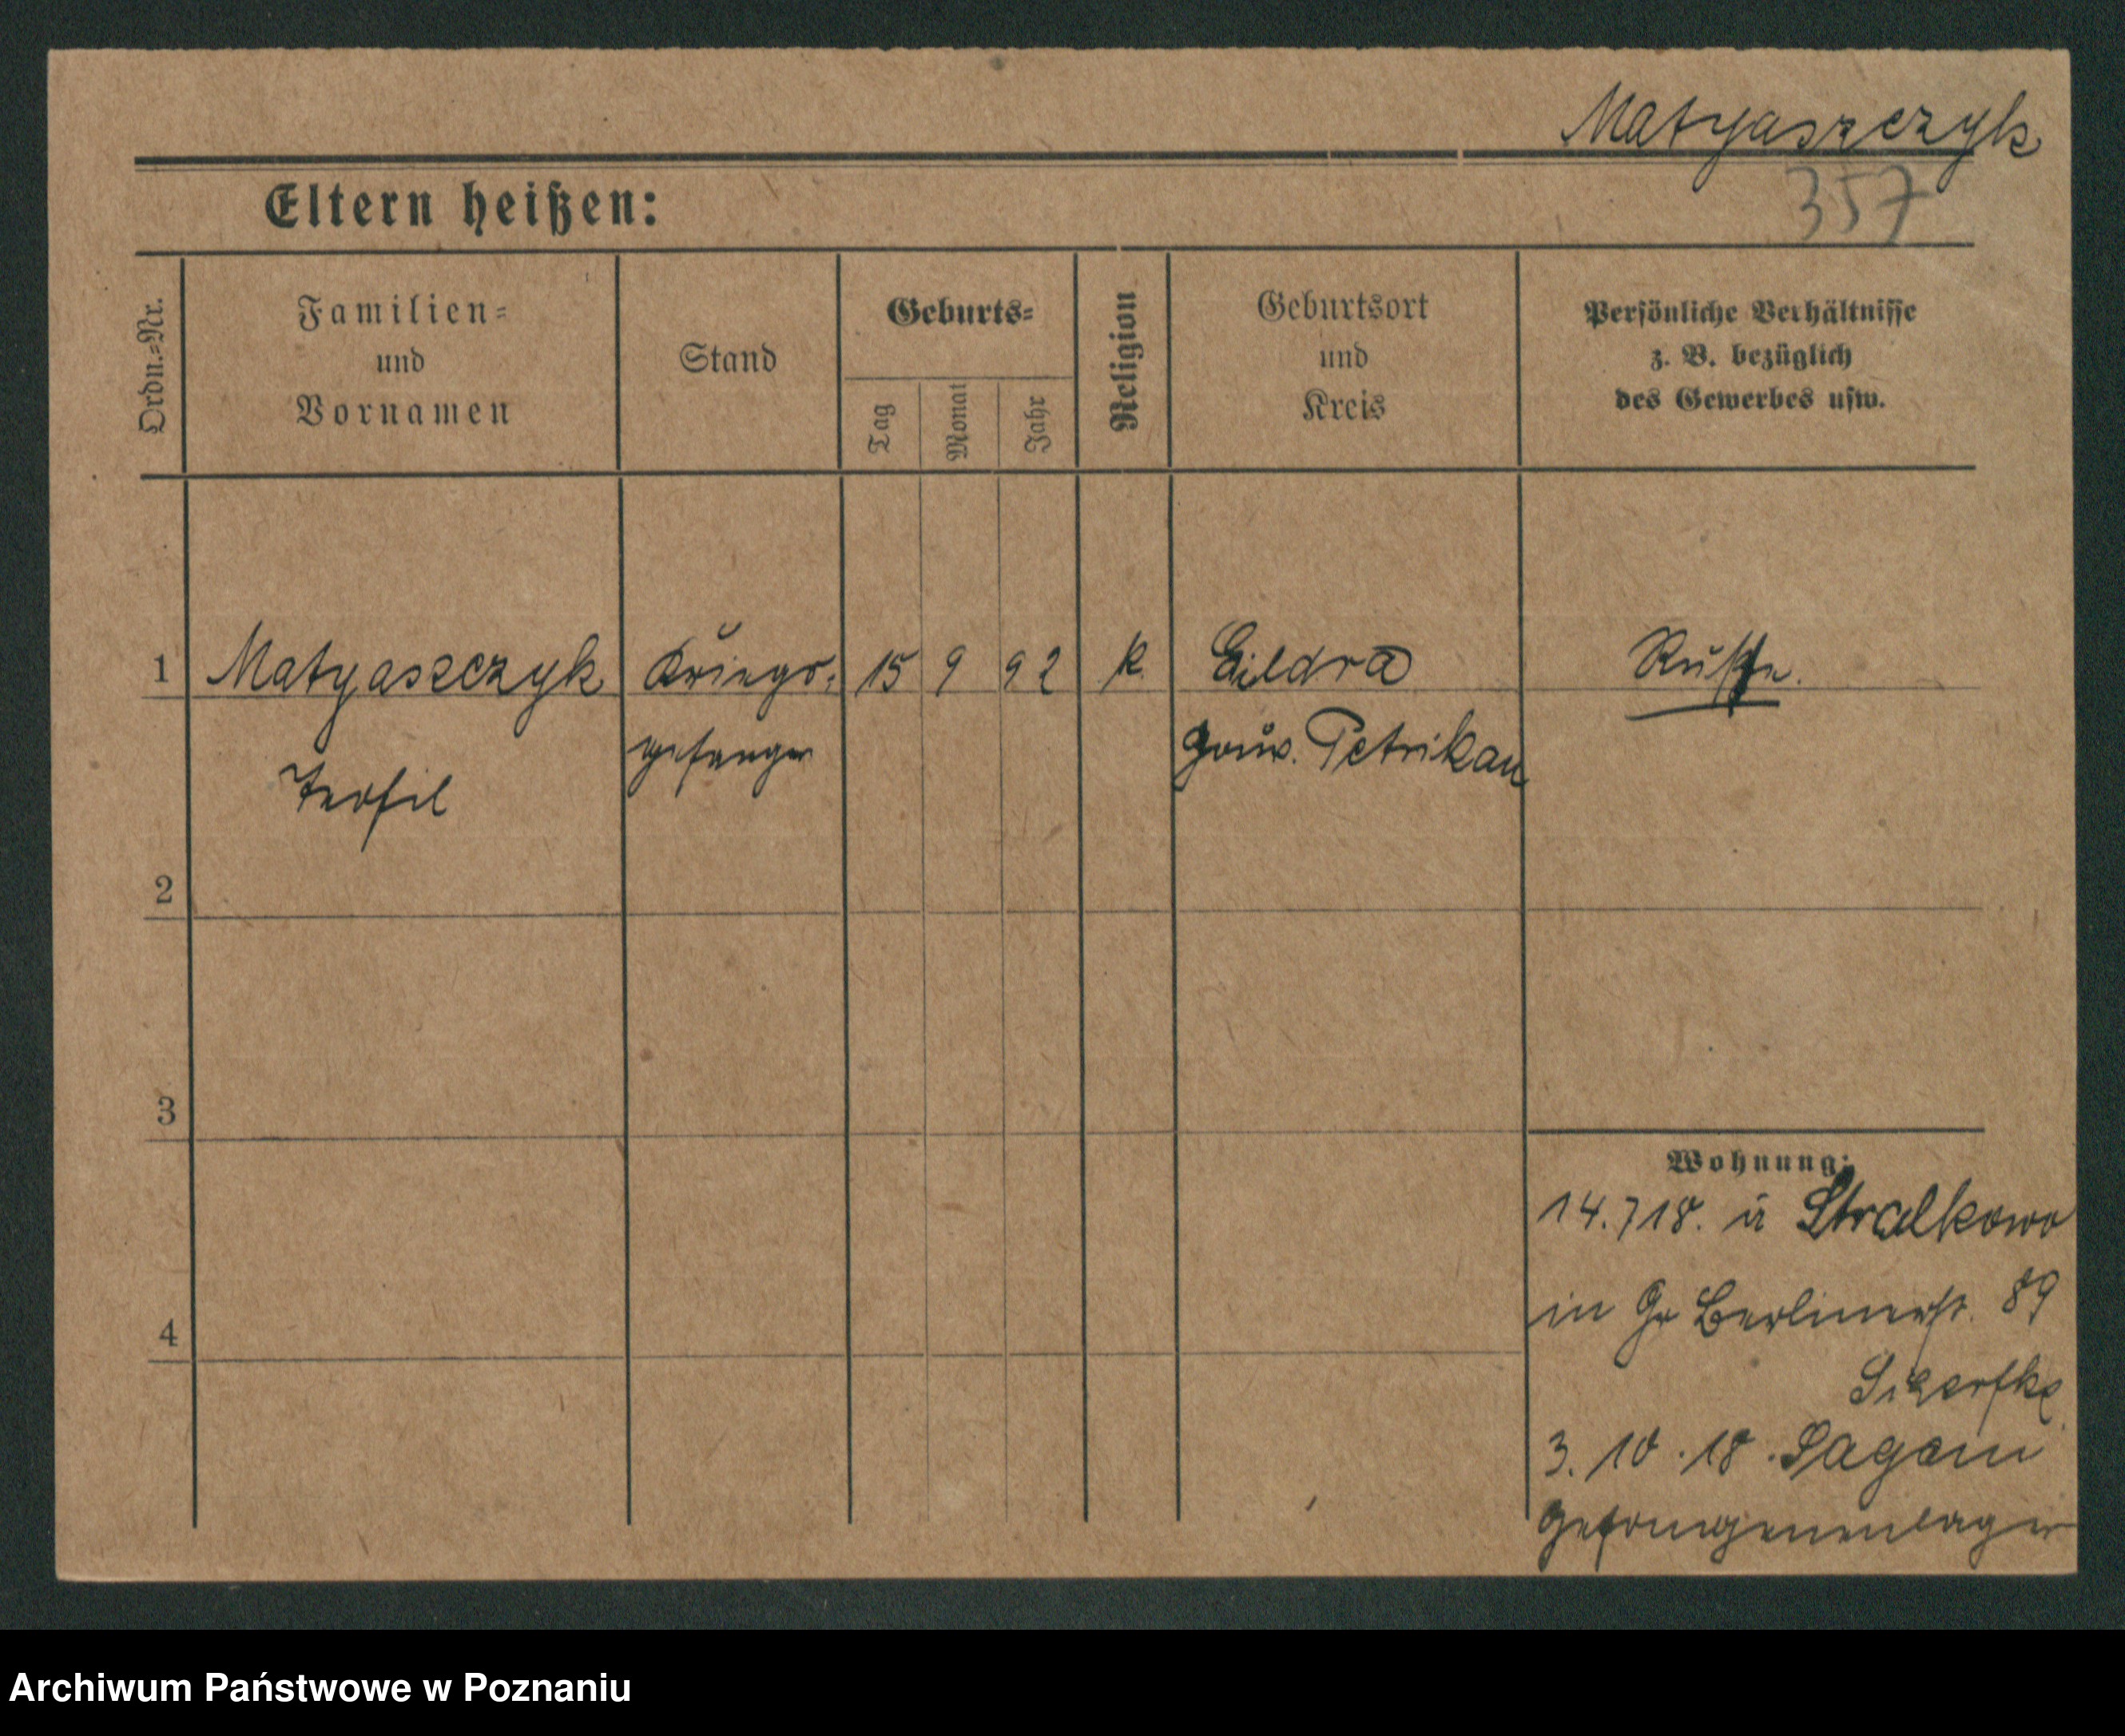 Matyaszczyk
357
Eltern heißen:
Ordn.=Nr.
Familien=
und
Vornamen
Stand
Geburts=
Tag
Monat
Jahr
Religion
Geburtsort
und
Kreis
Persönliche Verhältnisse
z. B. bezüglich
des Gewerbes usw.
1 Matyaszczyk Kriegs= 15 9 92 k. Russe.
Teofil gefanger Gouv. Petrikau
2
3
4
Wohnung:
14.7 18. Stralkowo
in Gr Berlinerst. 89
3. 10. 18. Sagan
Gefangenenlager
Archiwum Państwowe w Poznaniu